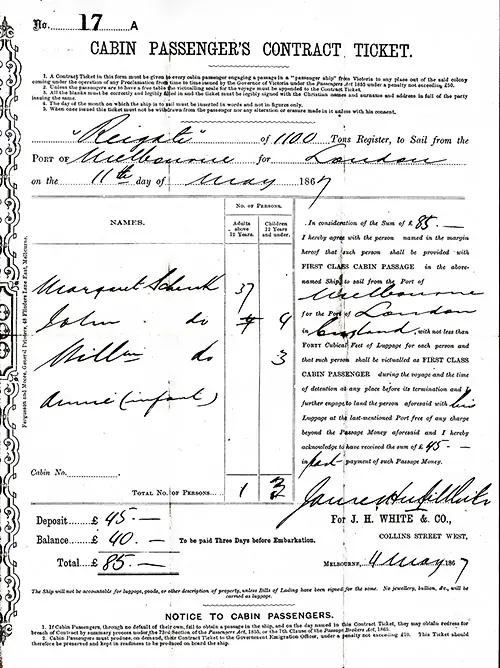 No. 17 A
CABIN PASSENGER'S CONTRACT TICKET.
1. A Contract Ticket in this form must be given to every cabin passenger engaging a passage in a "passenger ship" from Victoria to any place out of the said colony
coming under the operation of any Proclamation from time to time issued by the Governor of Victoria under the Passengers Act 1855 under a penalty not exceeding £50.
2. Unless the passengers are to have a free table the victualling scale for the voyage must be appended to the Contract Ticket.
3. All the blanks must be correctly and legibly filled in and the ticket must be legibly signed with the Christian names and surname and address in full of the party
issuing the same.
4. The day of the month on which the ship is to sail must be inserted in words and not in figures only.
5. When once issued this ticket must not be withdrawn from the passenger nor any alteration or erasure made in it unless with his consent.
"Reigate" of 1100 Tons Register, to Sail from the
PORT OF Melbourne for London
on the 11th day of May 1867
NAMES.
No. OF PERSONS.
Adults above 12 Years.
Children 12 Years and under.
Margaret Schenk 37
John do 4 4
William do 3
Annie (infant)
Cabin No.
TOTAL NO. OF PERSONS 1
Deposit £ 45.—
Balance £ 40.— To be paid Three Days before Embarkation.
Total £ 85.—
In consideration of the Sum of £ 85.—
I hereby agree with the person named in the margin
hereof that such person shall be provided with
FIRST CLASS CABIN PASSAGE in the above-
named Ship, to sail from the Port of
Melbourne
for the Port of London
in England, with not less than
FORTY Cubical Feet of Luggage for each person and
that such person shall be victualled as FIRST CLASS
CABIN PASSENGER during the voyage and the time
of detention at any place before its termination and I
further engage to land the person aforesaid with his
Luggage at the last-mentioned Port free of any charge
beyond the Passage Money aforesaid and I hereby
acknowledge to have received the sum of £ 45—
in part payment of such Passage Money.
For J. H. WHITE & CO.,
COLLINS STREET WEST,
MELBOURNE, 4 May 1867
The Ship will not be accountable for luggage, goods, or other description of property, unless Bills of Lading have been signed for the same. No jewellery, bullion, &c., will be
carried as luggage.
NOTICE TO CABIN PASSENGERS.
1. If Cabin Passengers, through no default of their own, fail to obtain a passage in the ship, and on the day named in this Contract Ticket, they may obtain redress for
breach of Contract by summary process under the 73rd Section of the Passengers Act, 1855, or the 7th Clause of the Passage Brokers Act, 1863.
2. Cabin Passengers must produce, on demand, their Contract Ticket to the Government Emigration Officer, under a penalty not exceeding £10. This Ticket should
therefore be preserved and kept in readiness to be produced on board the ship.
Fergusson and Moore, General Printers, 48 Flinders Lane East, Melbourne.